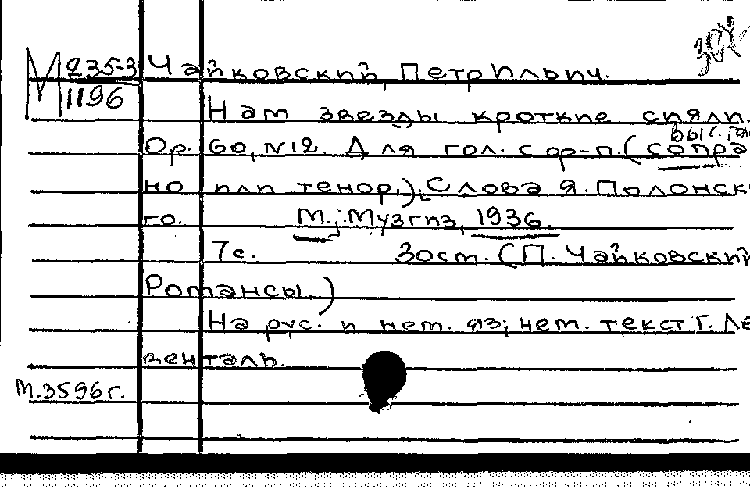 М 235-3
1196
Чайковский, Петр Ильич.
Нам звезды кроткие сияли.
Ор. 60, №12. Для гол. с ф-п. (сопра
но или тенор.). Слова Я. Полонск
го. М.; Музгиз, 1936.
7с. 30ст. (П. Чайковский
Романсы.)
На рус. и нем. яз; нем. текст Г. Ле
венталь.
М.3596г.